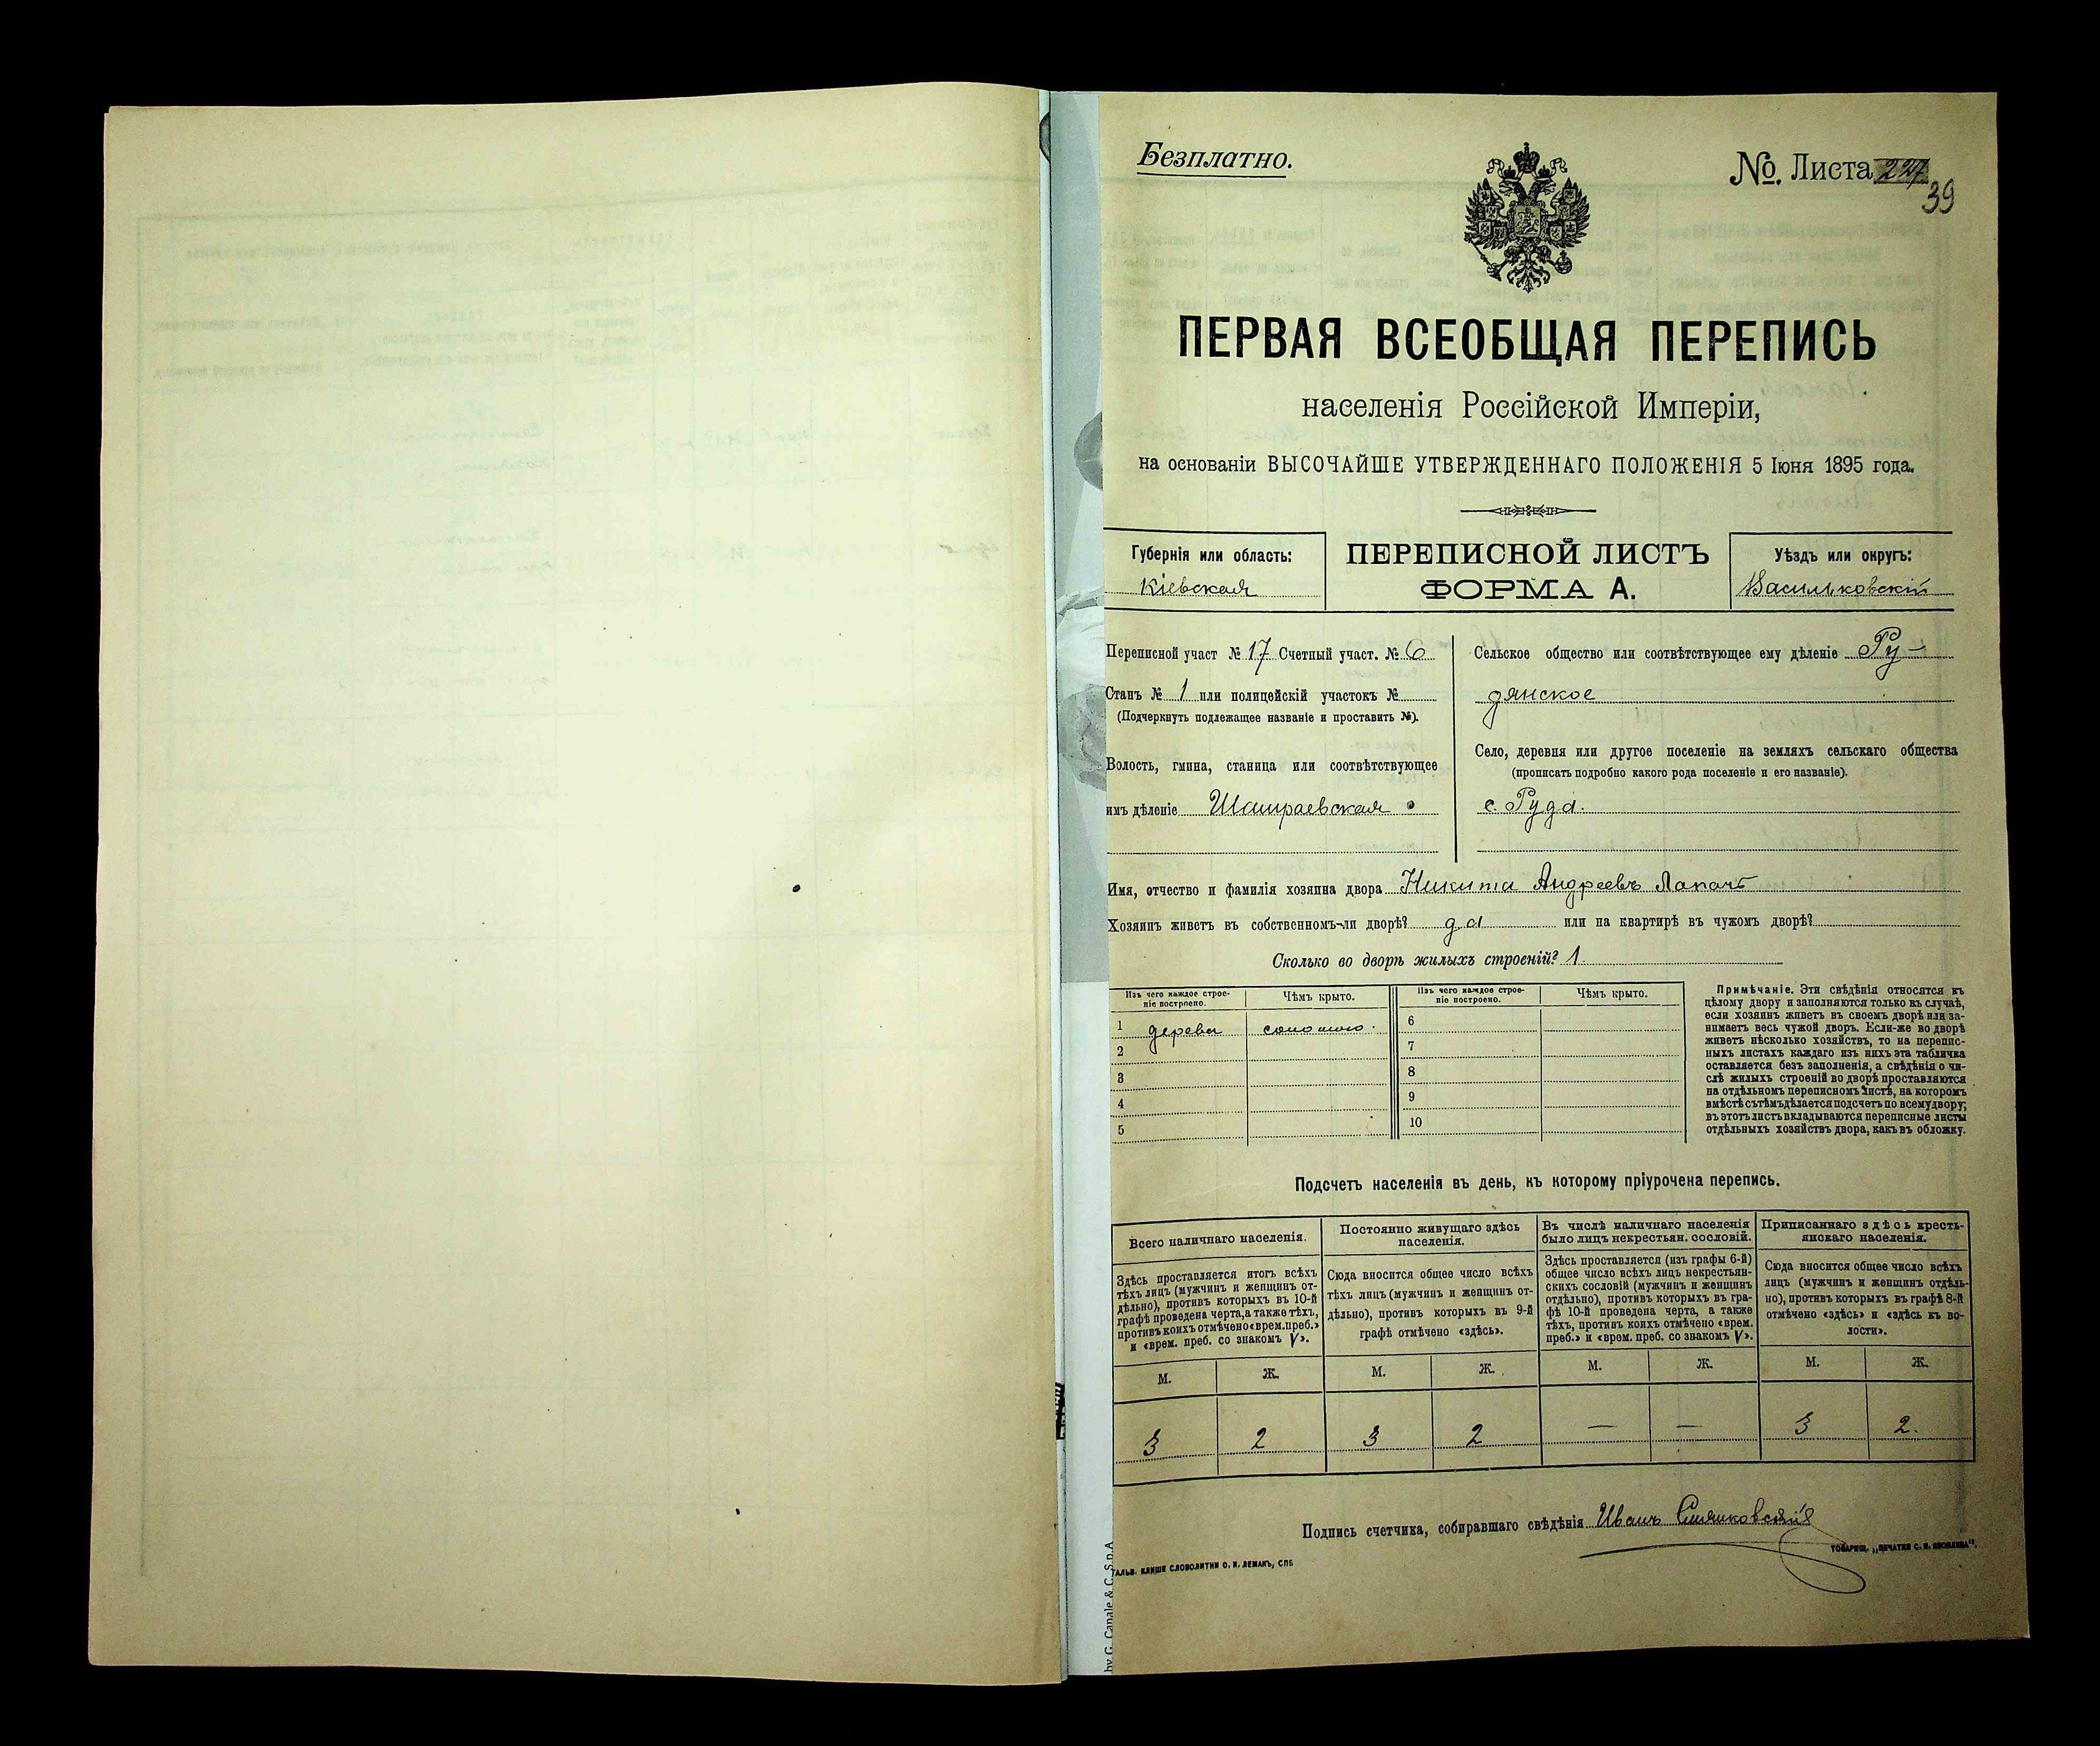 Безплатно.
№. Листа 227
39
ПЕРВАЯ ВСЕОБЩАЯ ПЕРЕПИСЬ
населенія Россійской Имперіи,
на основаніи ВЫСОЧАЙШЕ УТВЕРЖДЕННАГО ПОЛОЖЕНІЯ 5 Іюня 1895 года.
Губернія или область:
Кіевская
ПЕРЕПИСНОЙ ЛИСТЪ
ФОРМА А.
Уѣздъ или округъ:
Васильковскій
Переписной участ № 17 Счетный участ. № 6
Станъ № 1 или полицейскій участокъ №
(Подчеркнуть подлежащее названіе и проставить №).
Волость, гмина, станица или соотвѣтствующее
имъ дѣленіе Шамраевская
Сельское общество или соотвѣтствующее ему дѣленіе Ру-
дянское
Село, деревня или другое поселеніе на земляхъ сельскаго общества
(прописать подробно какого рода поселеніе и его названіе).
с. Руда.
Имя, отчество и фамилія хозяина двора Никита Андреевъ Лапачъ
Хозяинъ живетъ въ собственномъ-ли дворѣ? да или на квартирѣ въ чужомъ дворѣ?
Сколько во дворѣ жилыхъ строеній? 1
Изъ чего каждое строе-
ніе построено.
Чѣмъ крыто.
Изъ чего каждое строе-
ніе построено.
Чѣмъ крыто.
1 дерева соломою.
2
3
4
5
6
7
8
9
10
Примѣчаніе. Эти свѣдѣнія относятся къ
цѣлому двору и заполняются только въ случаѣ,
если хозяинъ живетъ въ своемъ дворѣ или за-
нимаетъ весь чужой дворъ. Если-же во дворѣ
живетъ нѣсколько хозяйствъ, то на перепис-
ныхъ листахъ каждаго изъ нихъ эта табличка
оставляется безъ заполненія, а свѣдѣнія о чи-
слѣ жилыхъ строеній во дворѣ проставляются
на отдѣльномъ переписномъ листѣ, на которомъ
вмѣстѣ съ тѣмъ дѣлается подсчетъ по всему двору;
въ этотъ листъ вкладываются переписные листы
отдѣльныхъ хозяйствъ двора, какъ въ обложку.
Подсчетъ населенія въ день, къ которому пріурочена перепись.
Всего наличнаго населенія.
Здѣсь проставляется итогъ всѣхъ
тѣхъ лицъ (мужчинъ и женщинъ от-
дѣльно), противъ которыхъ въ 10-й
графѣ проведена черта, а также тѣхъ,
противъ коихъ отмѣчено «врем. преб.»
и «врем. преб. со знакомъ V».
Постоянно живущаго здѣсь
населенія.
Сюда вносится общее число всѣхъ
тѣхъ лицъ (мужчинъ и женщинъ от-
дѣльно), противъ которыхъ въ 9-й
графѣ отмѣчено «здѣсь».
Въ числѣ наличнаго населенія
было лицъ некрестьян. сословій.
Здѣсь проставляется (изъ графы 6-й)
общее число всѣхъ лицъ некрестьян-
скихъ сословій (мужчинъ и женщинъ
отдѣльно), противъ которыхъ въ гра-
фѣ 10-й проведена черта, а также
тѣхъ, противъ коихъ отмѣчено «врем.
преб.» и «врем. преб. со знакомъ V».
Приписаннаго здѣсь кресть-
янскаго населенія.
Сюда вносится общее число всѣхъ
лицъ (мужчинъ и женщинъ отдѣль-
но), противъ которыхъ въ графѣ 8-й
отмѣчено «здѣсь» и «здѣсь къ во-
лости».
М. Ж. М. Ж. М. Ж. М. Ж.
3 2 3 2 — — 3 2.
Подпись счетчика, собиравшаго свѣдѣнія Иванъ
ГАЛЬВ. КЛИШЕ СЛОВОЛИТНИ О. И. ЛЕМАНЪ, СПБ
ТОВАРИЩ. „ПЕЧАТНЯ С. П. ЯКОВЛЕВА“.
by G. Canale & C. S.p.A